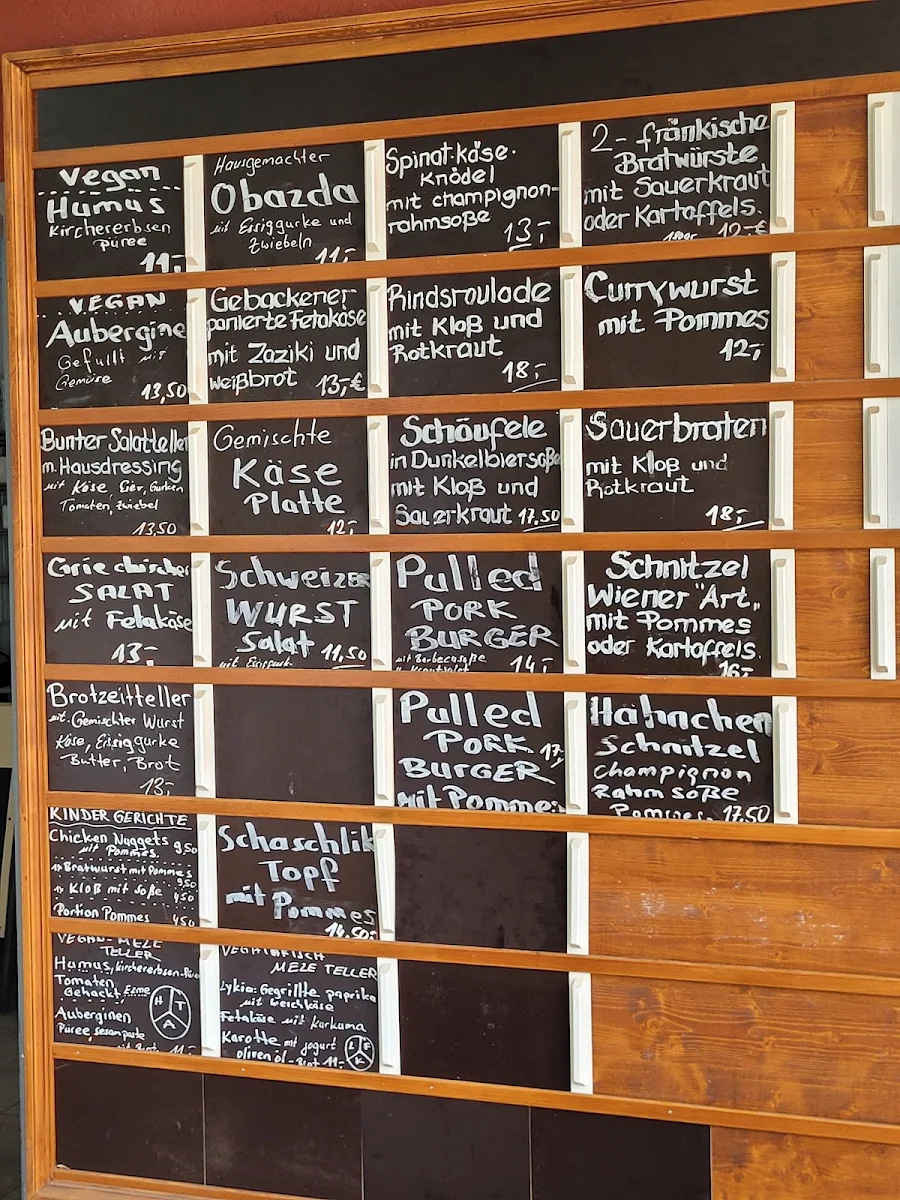 Vegan
Humus
Kirchererbsen
Püree
11,-
Hausgemachter
Obazda
mit Essiggurke und
Zwiebeln
11,-
Spinat-käse-
Knödel
mit champignon-
rahmsoße
13,-
2 - fränkische
Bratwürste
mit Sauerkraut
oder Kartoffels.
12,-€
VEGAN
Aubergine
Gefüllt mit
Gemüse
13,50
Gebackener
panierte Fetakäse
mit Zaziki und
weißbrot 13,-€
Rindsroulade
mit Kloß und
Rotkraut
18,-
Currywurst
mit Pommes
12,-
Bunter Salatteller
m. Hausdressing
mit Käse, Eier, Gurken
Tomaten, Zwiebel
13,50
Gemischte
Käse
Platte
12,-
Schäufele
in Dunkelbiersoße
mit Kloß und
Sauerkraut 17,50
Sauerbraten
mit Kloß und
Rotkraut
18,-
Griechischer
SALAT
mit Fetakäse
13,-
Schweizer
WURST
Salat 11,50
Pulled
PORK
BURGER
mit Barbecusoße
14,-
Schnitzel
Wiener "Art"
mit Pommes
oder Kartoffels.
16,-
Brotzeitteller
mit Gemischter Wurst
Käse, Essiggurke
Butter, Brot
13,-
Pulled
PORK 17,-
BURGER
mit Pommes
Hähnchen
Schnitzel
Champignon
Rahm soße
Pommes 17,50
KINDER GERICHTE
Chicken Nuggets 9,50
mit Pommes
1x Bratwurst mit Pommes
9,50
1x Kloß mit Soße 4,50
Portion Pommes 4,50
Schaschlik
Topf
mit Pommes
14,50
VEGAN-MEZE
TELLER
Humus, kirchererbsen-Püree
Tomaten
Gehackt Ezme
Auberginen
Püree sesampaste
mit Brot 11,-
H T
A
VEGATARISCH
MEZE TELLER
Lykia: Gegrillte paprika
mit Weichkäse
Fetakäse mit Kurkuma
Karotte mit jogurt
olivenöl - Brot 11,-
L F
K